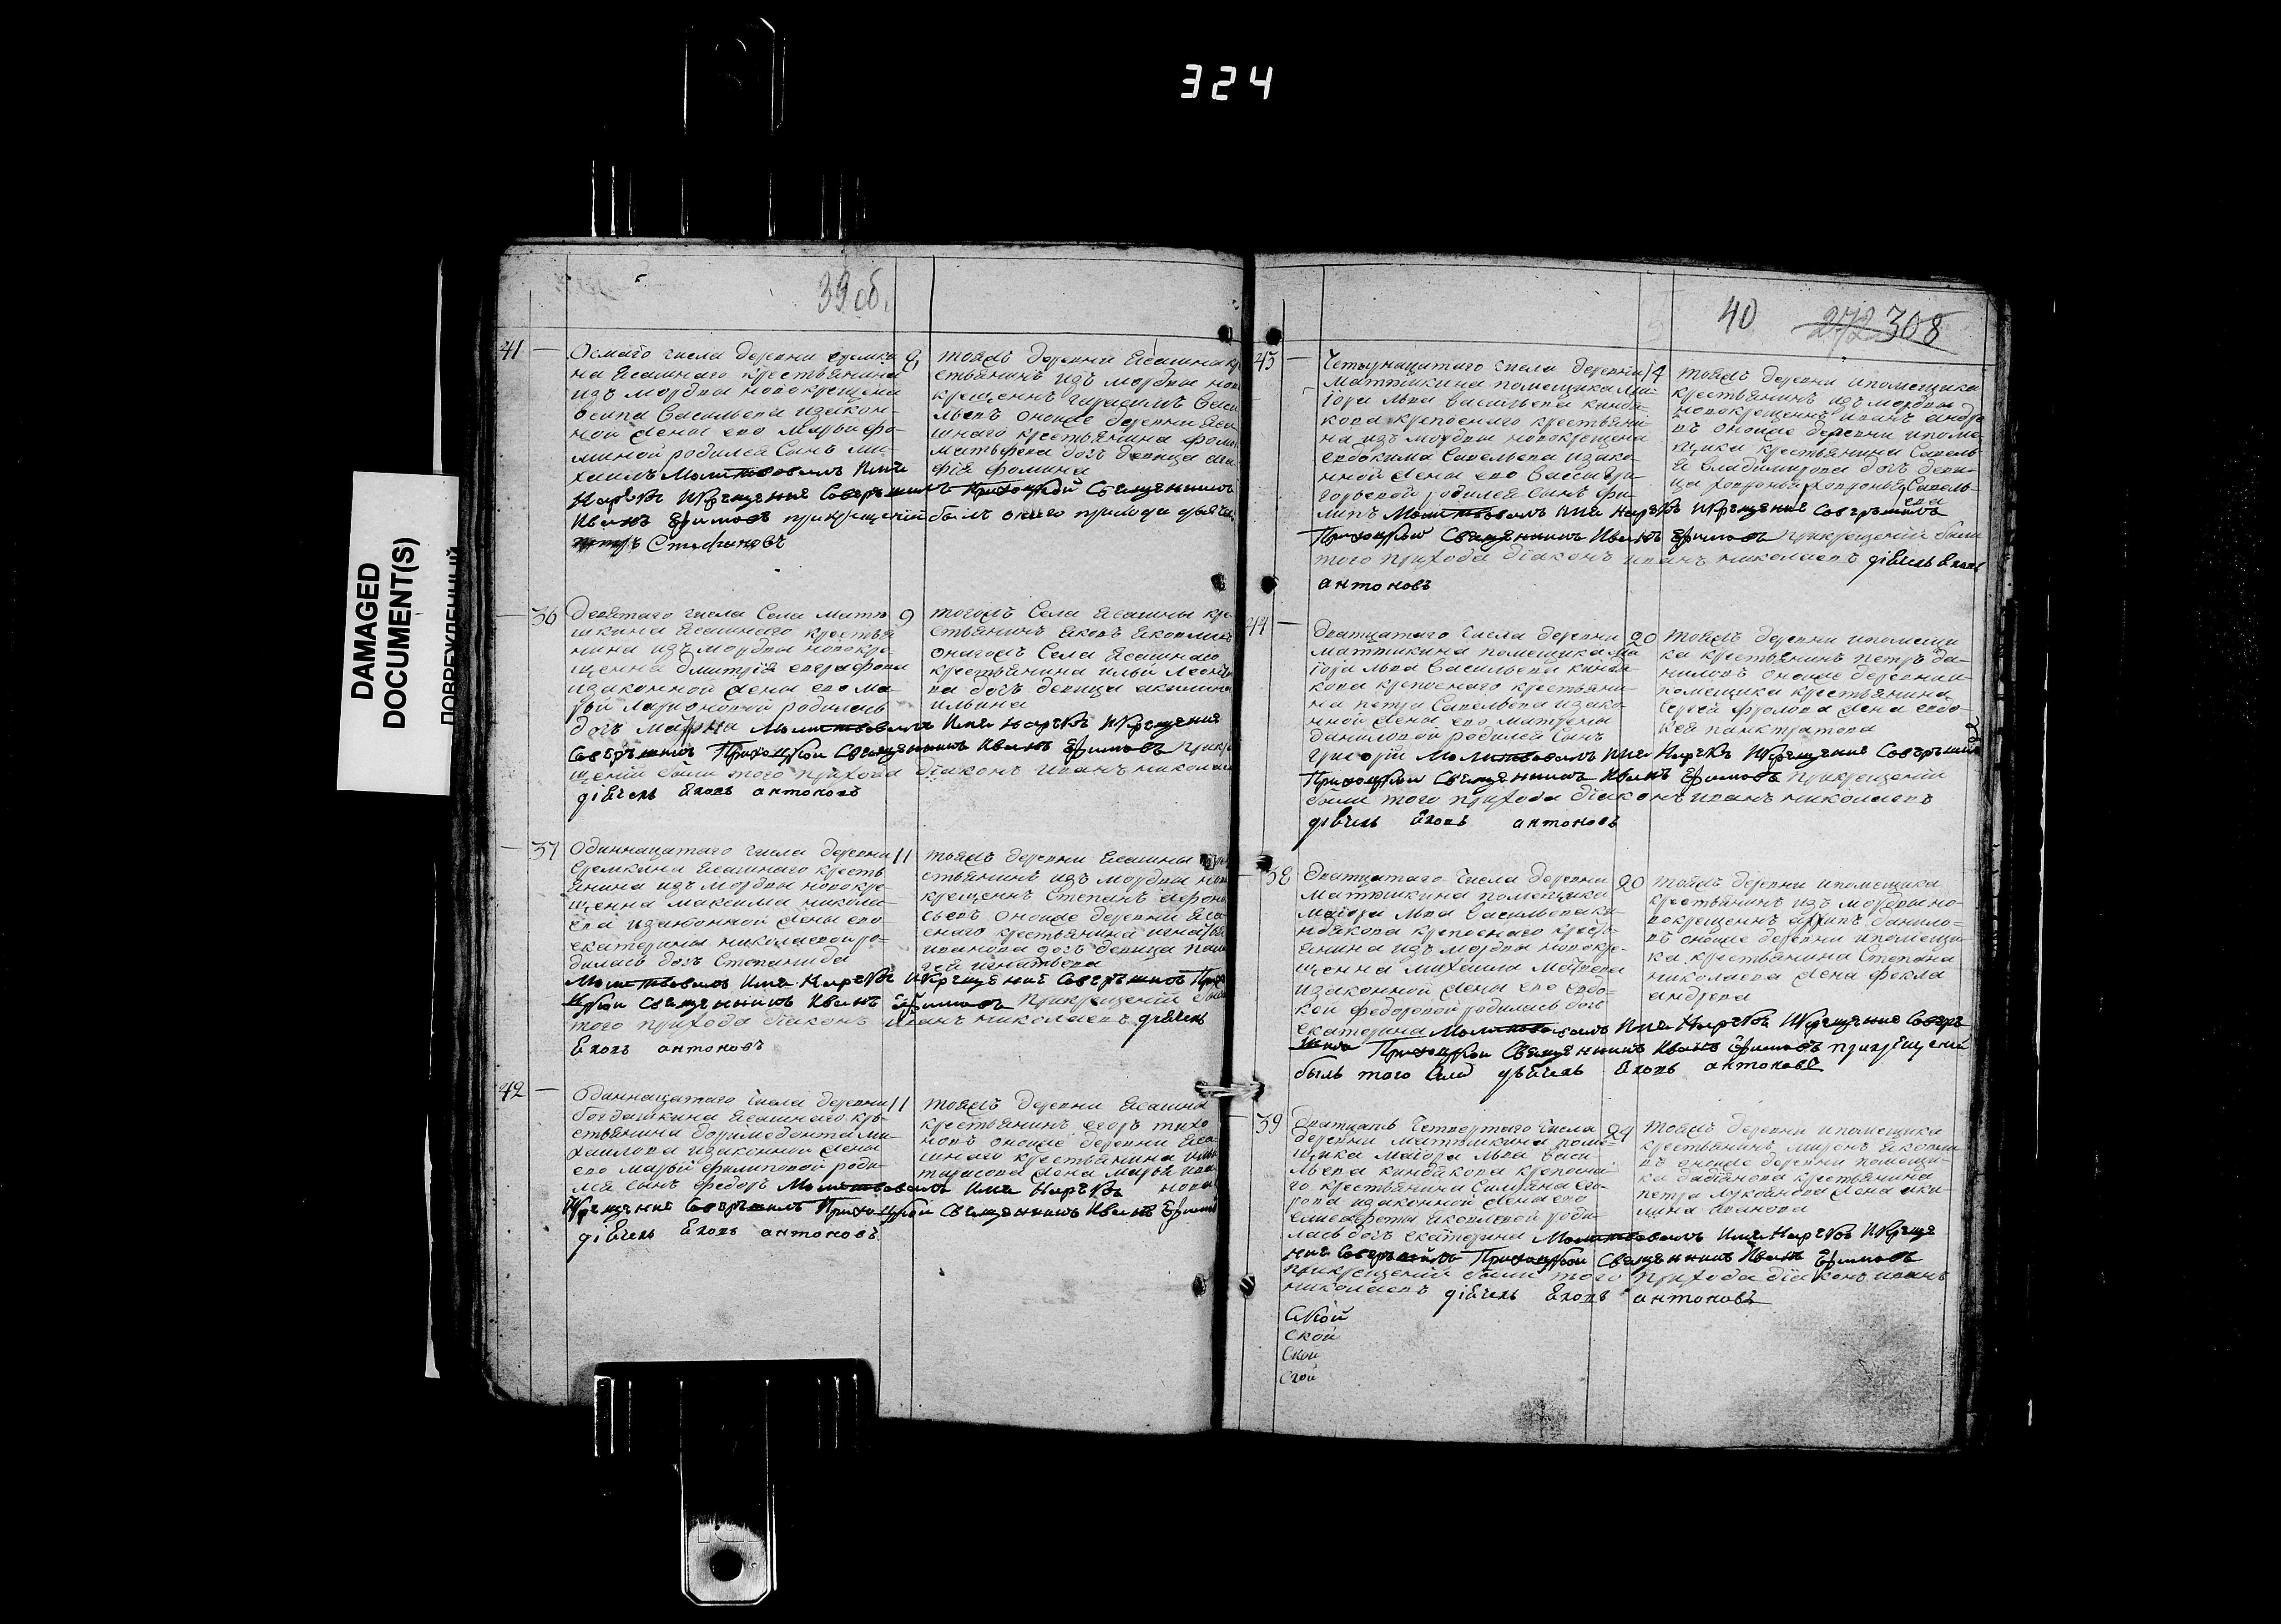 324
DAMAGED
DOCUMENT(S)
ПОВРЕЖДЕННЫЙ
39 об.
41
Осмаго числа деревни еремки
на ясашнаго крестьянина
изъ мордвы новокрещена
осипа васильева изакон-
ной жены его марьи фо-
миной родился сынъ ми-
хаилъ Молитвовалъ Имя
Нарекъ Икрещение Соверъшилъ Приходской Священникъ
Иванъ Ефимовъ прикрещении былъ онаго прихода дьячекъ
петръ Стефановъ
8
тояжъ деревни Ясашна кр
стьянинъ изъ мордвы нов
крещенъ герасимъ Васи
льевъ оноиже деревни Яса
шнаго крестьянина фомы
матвеева дочь девица ага
фія фомина
36
Девятаго числа Села матю
шкина Ясашнаго крестья
нина изъ мордвы новокре-
щенна дмитрія евграфова
изаконной жены его ма-
рьи ларионовой родилась
дочь мавра Молитвовалъ Имя нарекъ Икрещение
Соверъшилъ Приходской Священникъ Иванъ Ефимовъ прикре
щеніи были того прихода діаконъ иванъ николаевъ
діячекъ Яковъ антоновъ
9
тогожъ Села Ясашны кре
стьянинъ Яковъ Яковлевъ
онагожъ Села Ясашнаго
крестьянина ильи леонть
ва дочь девица акилина
ильина
37
Одиннацатаго числа деревни
Еремкины Ясашнаго кресть
янина изъ мордвы новокре-
щенна максима никола-
ева изаконной жены его
екатерины николаевой ро-
дилась дочь Степанида
Молитвовалъ Имя Нарекъ Икрещение Соверъшилъ Прихо
дской Священникъ Иванъ Ефимовъ прикрещеніи были
того прихода діаконъ Иванъ николаевъ діячекъ
Яковъ антоновъ
11
тояжъ деревни Ясашны кре
стьянинъ изъ мордвы нов
крещенъ Степанъ афона
сьевъ оноиже деревни Яса-
снаго крестьянина игнатья
иванова дочь девица пела
гея игнатьева
42
Одиннацатаго числа деревни
богдашкина Ясашнаго кре-
стьянина доримедонта ми-
хаилова изаконной жены
его марьи филиповой роди-
лся сынъ федоръ Молитвовалъ Имя Нарекъ
Икрещение Соверъшилъ Приходской Священникъ Иванъ Ефимовъ
діячекъ Яковъ антоновъ
11
тояжъ деревни Ясашна
крестьянинъ егоръ тихо
новъ оноиже деревни Яса-
шнаго крестьянина
тарасова жена марья ива
нова
40 272 308
43
Четырнацатаго числа деревни
Матюшкина помещика маи
іора льва васильева кинди-
кова крепоснаго крестьяни-
на изъ мордвы новокрещена
евдокима Савельева изако-
нной жены его Вассы гри-
горьевой родился сынъ фи-
липъ Молитвовалъ Имя Нарекъ Икрещение Соверъшилъ
Приходской Священникъ Иванъ Ефимовъ прикрещеніи были
того прихода діаконъ иванъ николаевъ діячекъ Яковъ
антоновъ
14
тояжъ деревни ипомещика
крестьянинъ изъ мордвы
новокрещенъ иванъ андре
въ оноиже деревни ипоме-
щика крестьянина Савель
я владимирова дочь деви-
ца хавронья Савель-
ева
44
Дватцатаго числа деревни
матюшкина помещика Ма
іора льва Васильева кинди-
кова крепоснаго крестьяни-
на петра Савельева изако-
нной жены его матрены
даниловой родился сынъ
григорій Молитвовалъ Имя Нарекъ Икрещение Соверъшилъ
Приходской Священникъ Иванъ Ефимовъ прикрещеніи
были того прихода діаконъ иванъ николаевъ
діячекъ Яковъ антоновъ
20
тояжъ деревни ипомещи
ка крестьянинъ петръ да-
ниловъ оноиже деревни
помещика крестьянина
Сергея фролова жена евдо-
кея панкратова
38
Дватцатаго числа деревни
Матюшкина помещика
маіора льва Васильева ки-
ндякова крепоснаго кресть
янина изъ мордвы новокре-
щенна михаила Матвеева
изаконной жены его евдо-
кеи федоровой родилась дочь
екатерина Молитвовалъ Имя Нарекъ Икрещение Соверъ
шилъ Приходской Священникъ Иванъ Ефимовъ прикрещеніи
былъ того Села діячекъ Яковъ антоновъ
20
тояжъ деревни ипомещика
крестьянинъ изъ мордвы но-
вокрещенъ архипъ данило-
въ оноиже деревни ипомещи-
ка крестьянина Степана
николаева жена фекла
андреева
39
Дватцать Четвертаго числа
деревни матюшкина поме-
щика маіора льва васи-
льева киндякова крепосна-
го крестьянина Симиона его-
рова изаконной жены его
елисаветы Яковлевой роди-
лась дочь екатерина Молитвовалъ Имя Нарекъ Икреще
ние Соверъшилъ Приходской Священникъ Иванъ Ефимовъ
прикрещеніи были того прихода діаконъ иванъ
николаевъ діячекъ Яковъ антоновъ
24
тояжъ деревни ипомещика
крестьянинъ миронъ Яковле
въ оноиже деревни помещи-
ка крестьянина
петра лукоянова жена аки-
лина иванова
Ской
ской
Ской
Ской